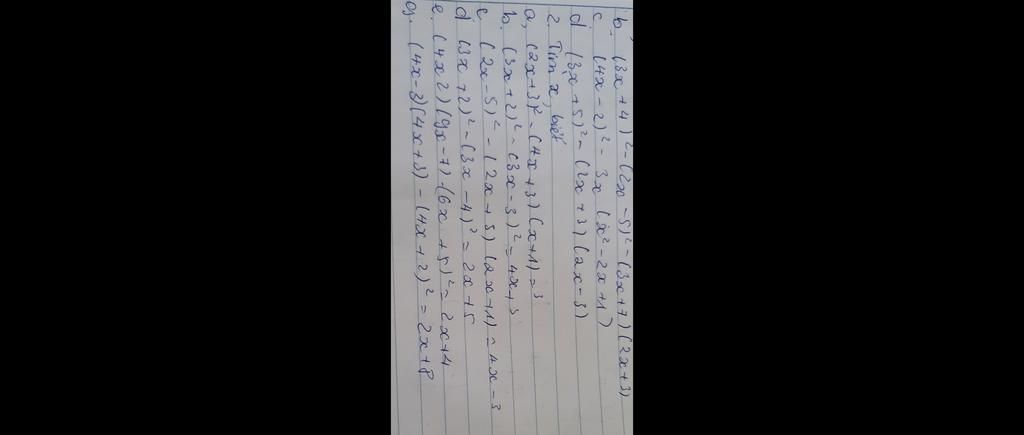 b. (3x+4)² - (2x-5)² - (3x+7)(2x+3)
c (4x-2)² - 3x (x²-2x+1)
d (3x+5)² - (2x+3)(2x-3)
2. Tìm x, biết
a, (2x+3)² - (4x+3)(x+1) = 3
b. (3x+2)² - (3x-3)² = 4x+3
c (2x-5)² - (2x+5)(2x+1) = 4x-3
d (3x+2)² - (3x-4)² = 2x+5
e. (4x2)(9x-7) - (6x+5)² = 2x+4
g. (4x-3)(4x+3) - (4x+2)² = 2x+8